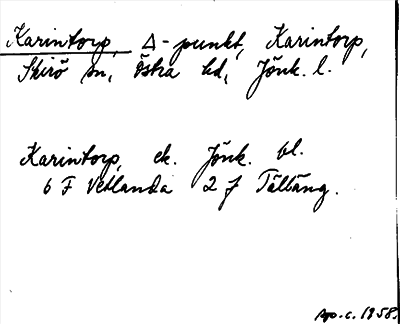 Karintorp, Δ-punkt, Karintorp,
Skirö sn, Östra hd, Jönk. l.
Karintorp, ek. Jönk. bl.
6 F Vetlanda 2 f Tälläng.
Ap. c. 1958.